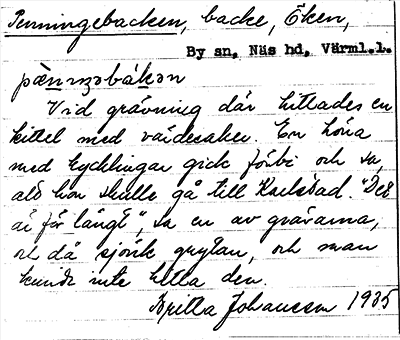 Penningebacken, backe, Öken,
By sn, Näs hd, Värml.l.
pæ̀nnɩŋəbákən
Vid grävning där hittades en
kittel med värdesaker. En höna
med kycklingar gick förbi och sa,
att hon skulle gå till Karlstad. "Det
är för långt", sa en av grävarna,
och då sjönk grytan, och man
kunde inte hitta den.
Britta Johansson 1935